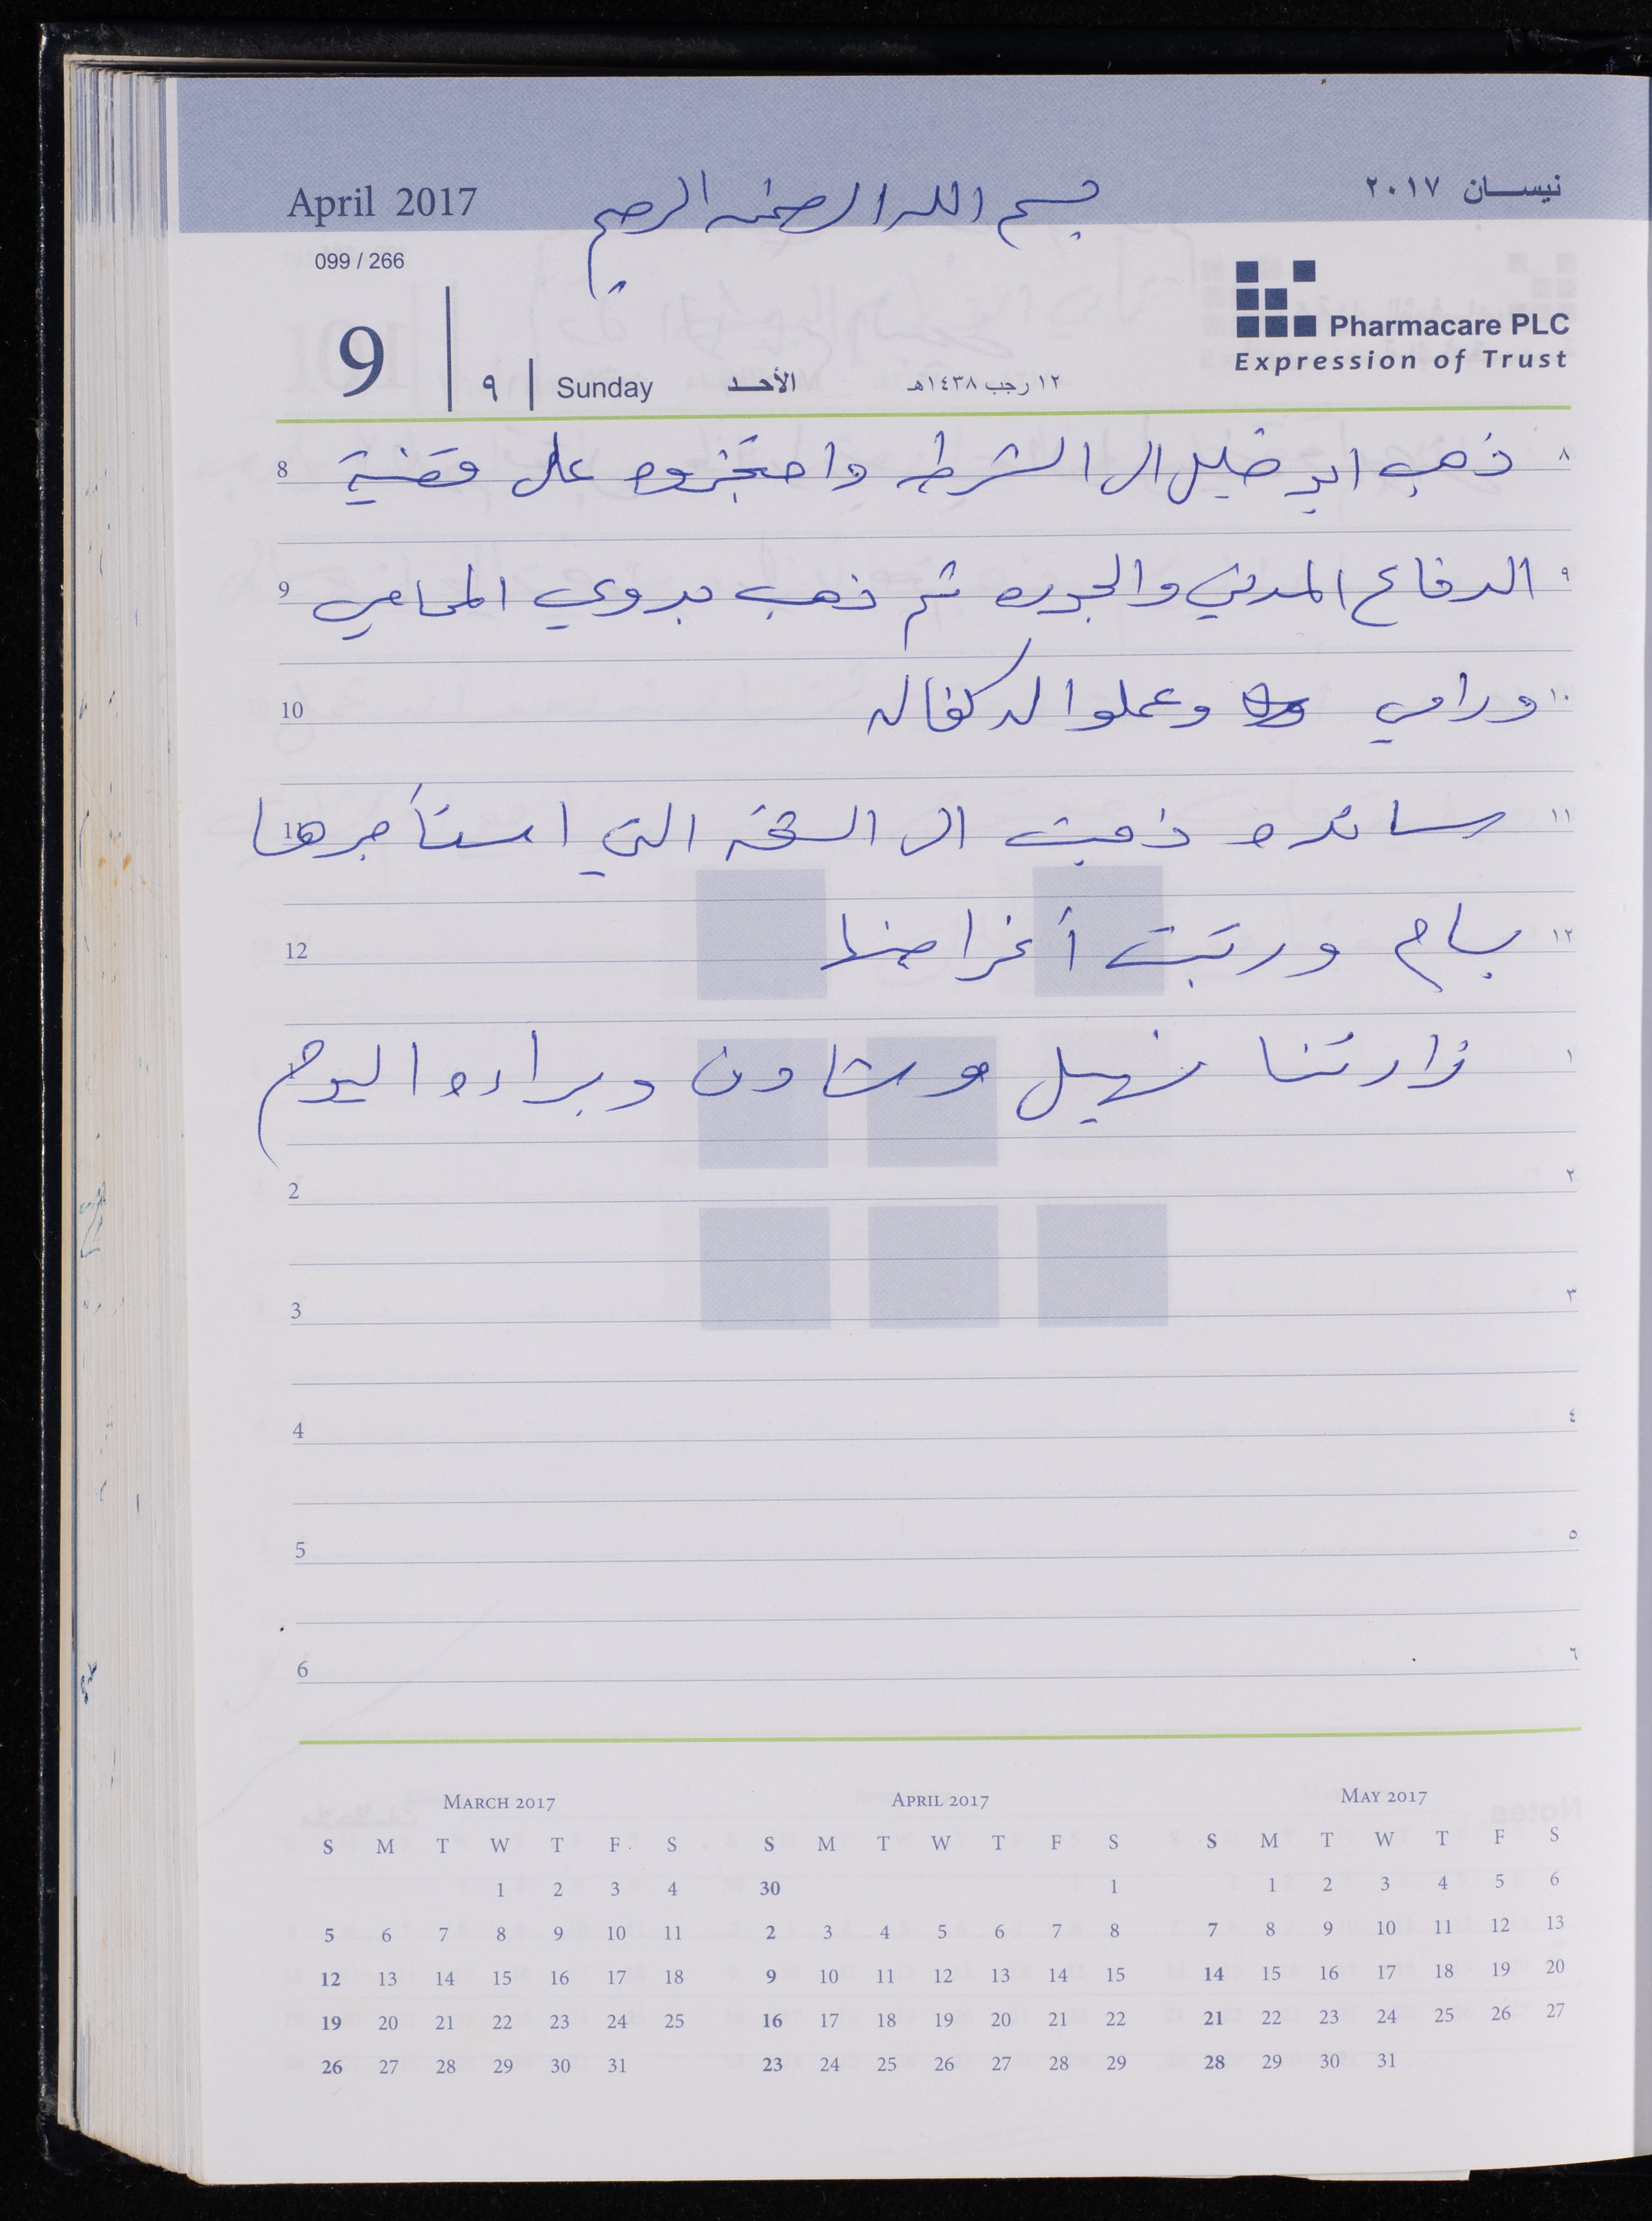 April 2017
بسم الله الرحمن الرحيم
نيسان ٢٠١٧
099 / 266
9 | ٩ | Sunday الأحد ١٢ رجب ١٤٣٨هـ
Pharmacare PLC
Expression of Trust
8 ذهب ابو خليل الى الشرطه واحتجزوه على قضية ٨
9 الدفاع المدني والجوره ثم ذهب بدوي المحامي ٩
10 ورامي وعملوا له كفاله ١٠
11 سائده ذهبت الى الشقه التي استأجرها ١١
12 بسام ورتبت أغراضها ١٢
زارتنا نهيل وشادن وبراءه اليوم ١
2 ٢
3 ٣
4 ٤
5 ٥
6 ٦
March 2017
S M T W T F S
1 2 3 4
5 6 7 8 9 10 11
12 13 14 15 16 17 18
19 20 21 22 23 24 25
26 27 28 29 30 31
April 2017
S M T W T F S
30 1
2 3 4 5 6 7 8
9 10 11 12 13 14 15
16 17 18 19 20 21 22
23 24 25 26 27 28 29
May 2017
S M T W T F S
1 2 3 4 5 6
7 8 9 10 11 12 13
14 15 16 17 18 19 20
21 22 23 24 25 26 27
28 29 30 31